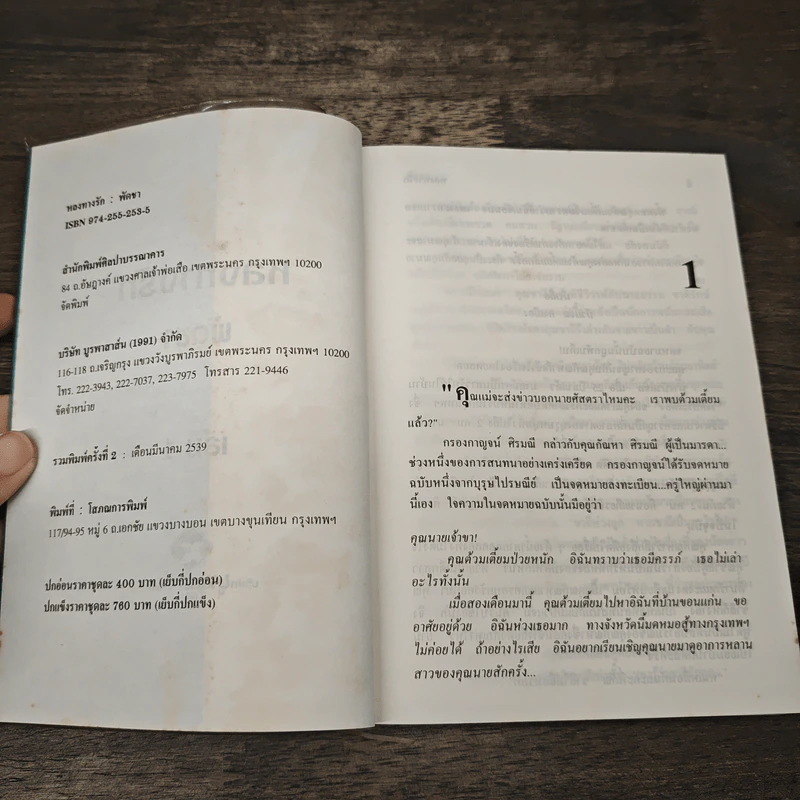 หลงทางรัก : พัดชา
ISBN 974-255-253-5
สำนักพิมพ์ศิลปาบรรณาคาร
84 ถ.อัษฎางค์ แขวงศาลเจ้าพ่อเสือ เขตพระนคร กรุงเทพฯ 10200
จัดพิมพ์
บริษัท บูรพาสาส์น (1991) จำกัด
116-118 ถ.เจริญกรุง แขวงวังบูรพาภิรมย์ เขตพระนคร กรุงเทพฯ 10200
โทร. 222-3943, 222-7037, 223-7975 โทรสาร 221-9446
จัดจำหน่าย
รวมพิมพ์ครั้งที่ 2 : เดือนมีนาคม 2539
พิมพ์ที่ : โสภณการพิมพ์
117/94-95 หมู่ 6 ถ.เอกชัย แขวงบางบอน เขตบางขุนเทียน กรุงเทพฯ
ปกอ่อนราคาชุดละ 400 บาท (เย็บกี่ปกอ่อน)
ปกแข็งราคาชุดละ 760 บาท (เย็บกี่ปกแข็ง)
1
"คุณแม่จะส่งข่าวบอกนายศัสตราไหมคะ เราพบด้วมเตี้ยม
แล้ว?"
กรองกาญจน์ ศิรมณี กล่าวกับคุณกัณหา ศิรมณี ผู้เป็นมารดา...
ช่วงหนึ่งของการสนทนาอย่างเคร่งเครียด กรองกาญจน์ได้รับจดหมาย
ฉบับหนึ่งจากบุรุษไปรษณีย์ เป็นจดหมายลงทะเบียน...ครู่ใหญ่ผ่านมา
นี้เอง ใจความในจดหมายฉบับนั้นมีอยู่ว่า
คุณนายเจ้าขา!
คุณด้วมเตี้ยมป่วยหนัก อิฉันทราบว่าเธอมีครรภ์ เธอไม่เล่า
อะไรทั้งนั้น
เมื่อสองเดือนมานี้ คุณด้วมเตี้ยมไปหาอิฉันที่บ้านขอนแก่น ขอ
อาศัยอยู่ด้วย อิฉันห่วงเธอมาก ทางจังหวัดนี้มดหมอสู้ทางกรุงเทพฯ
ไม่ค่อยได้ ถ้าอย่างไรเสีย อิฉันอยากเรียนเชิญคุณนายมาดูอาการหลาน
สาวของคุณนายสักครั้ง...